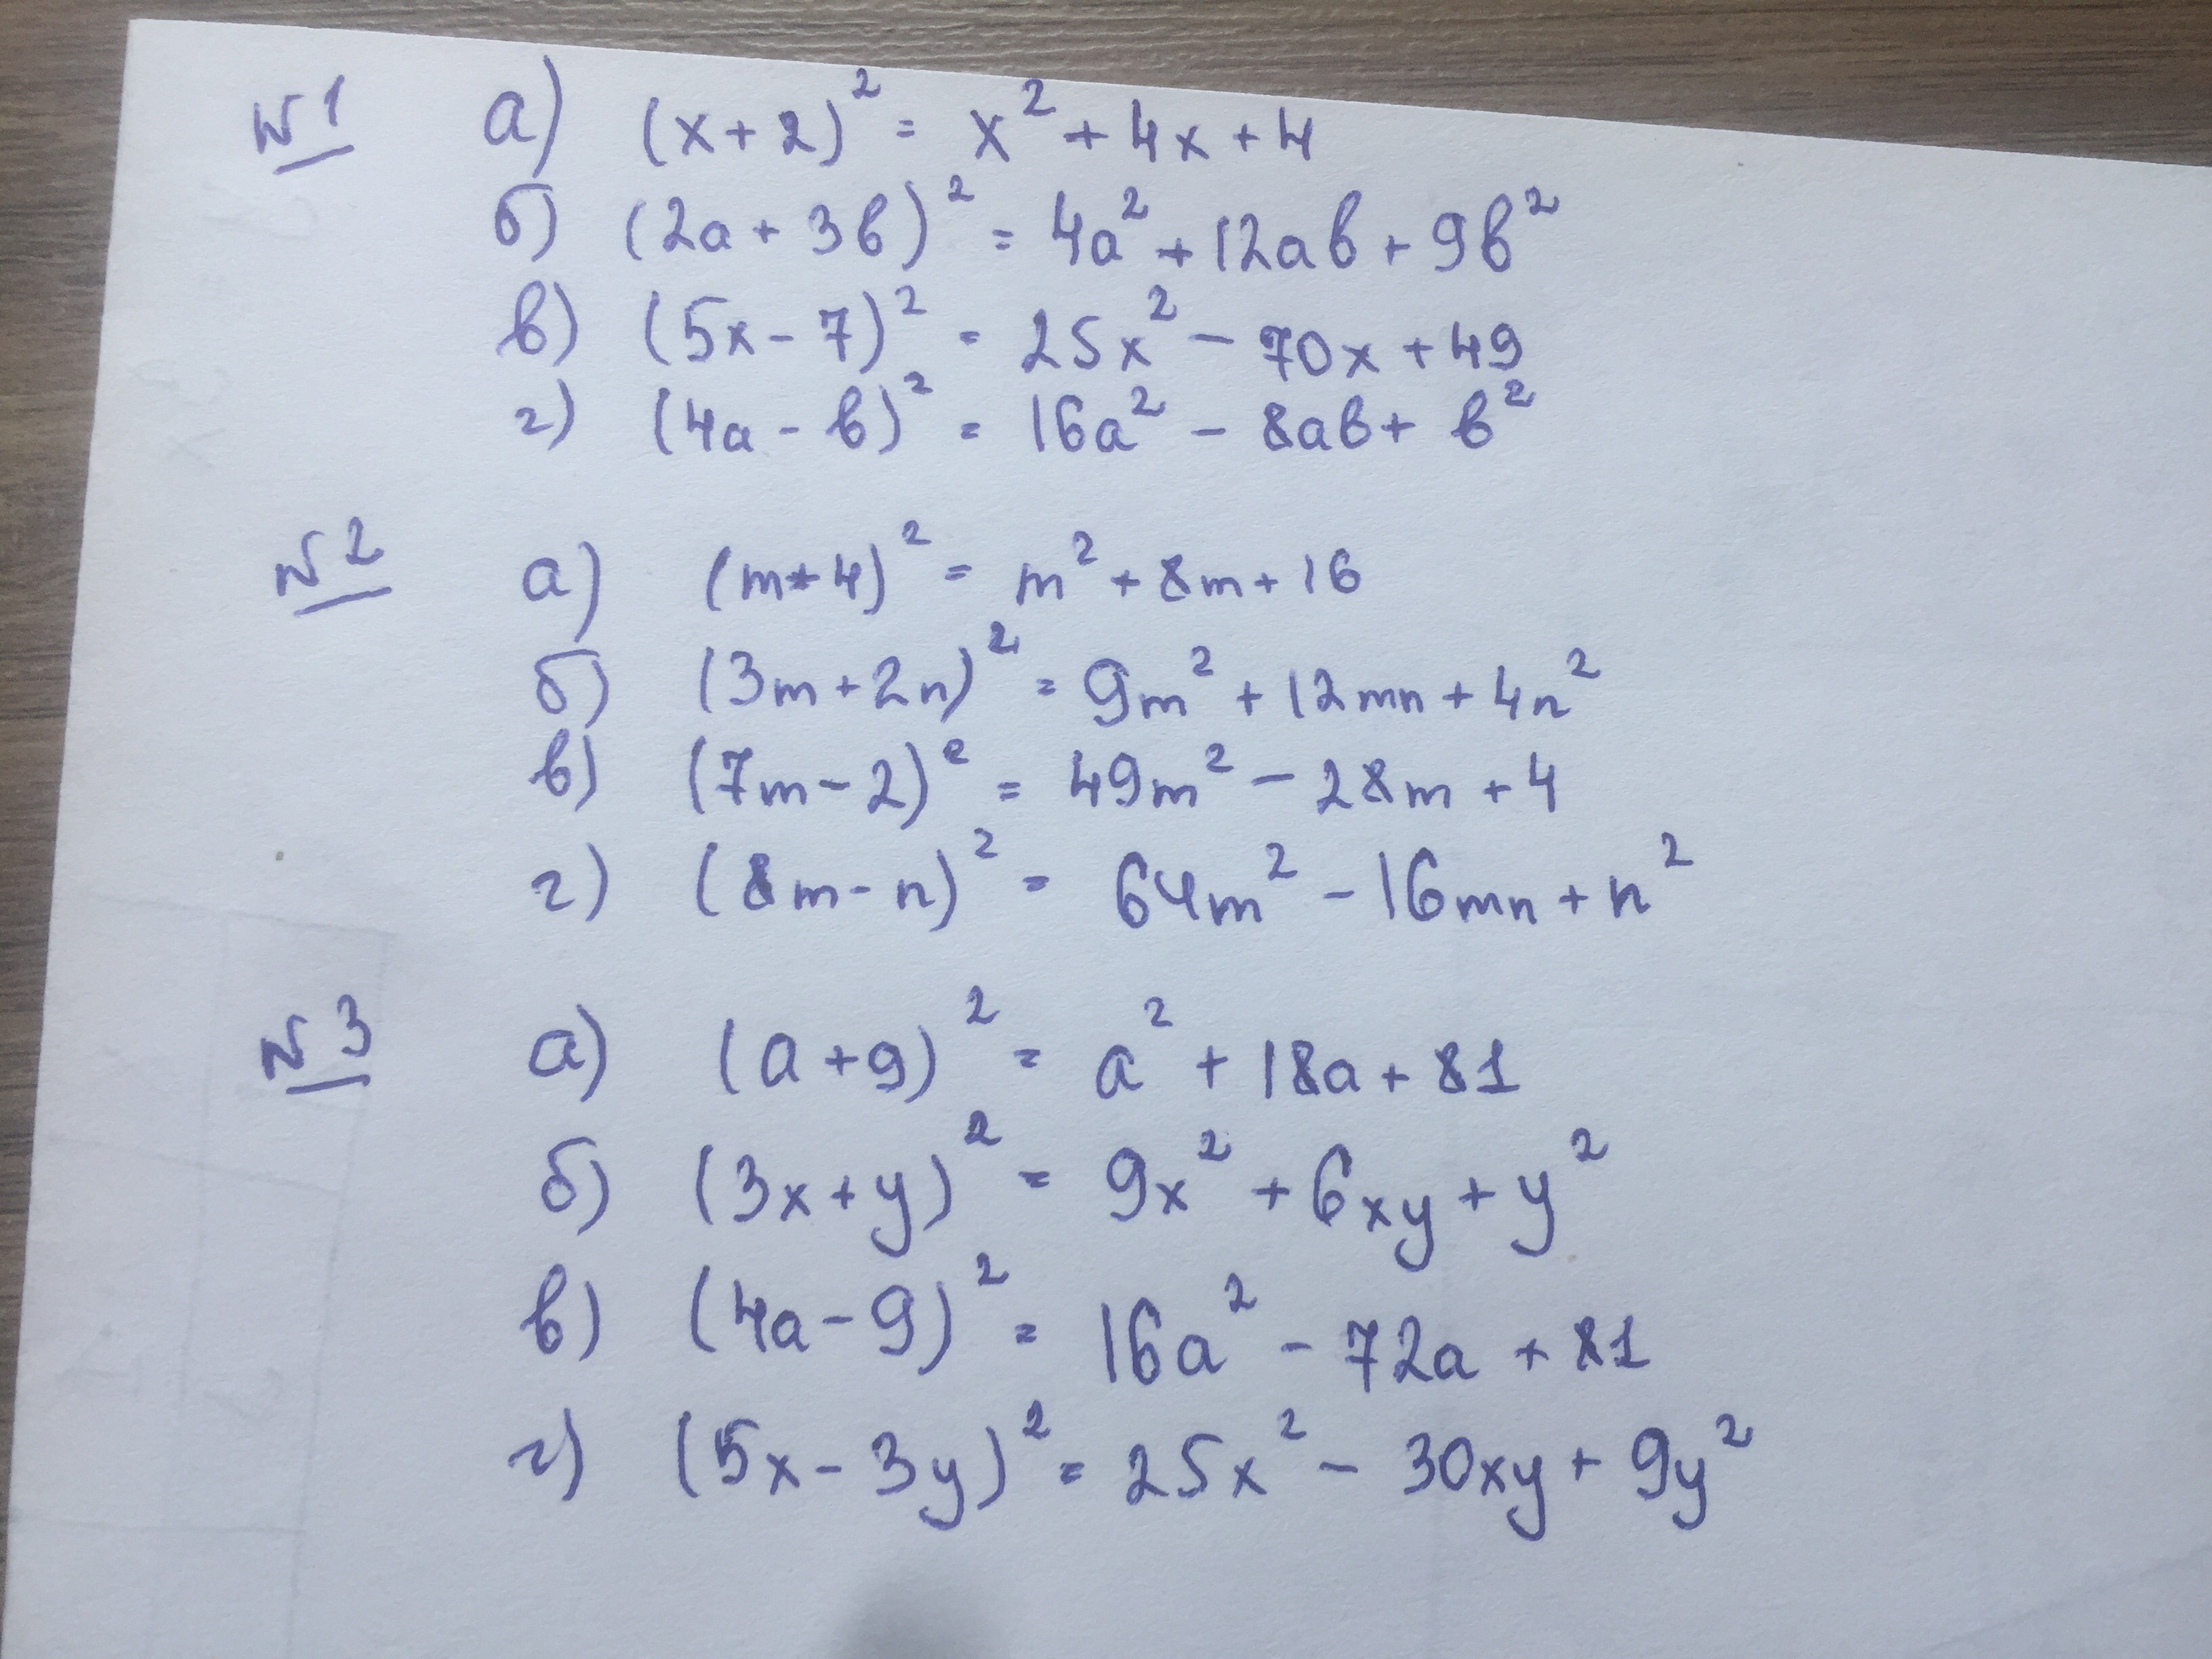 №1 а) (x+2)² = x² + 4x + 4
б) (2a + 3b)² = 4a² + 12ab + 9b²
в) (5x - 7)² = 25x² - 70x + 49
г) (4a - b)² = 16a² - 8ab + b²
№2 а) (m+4)² = m² + 8m + 16
б) (3m + 2n)² = 9m² + 12mn + 4n²
в) (7m - 2)² = 49m² - 28m + 4
г) (8m - n)² = 64m² - 16mn + n²
№3 а) (a + 9)² = a² + 18a + 81
б) (3x + y)² = 9x² + 6xy + y²
в) (4a - 9)² = 16a² - 72a + 81
г) (5x - 3y)² = 25x² - 30xy + 9y²